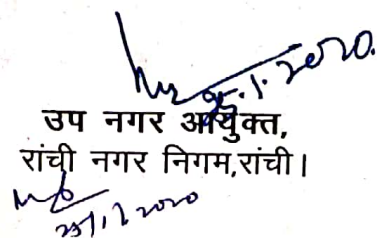 25.1.2020.
उप नगर आयुक्त,
रांची नगर निगम,रांची।
25/1/2020